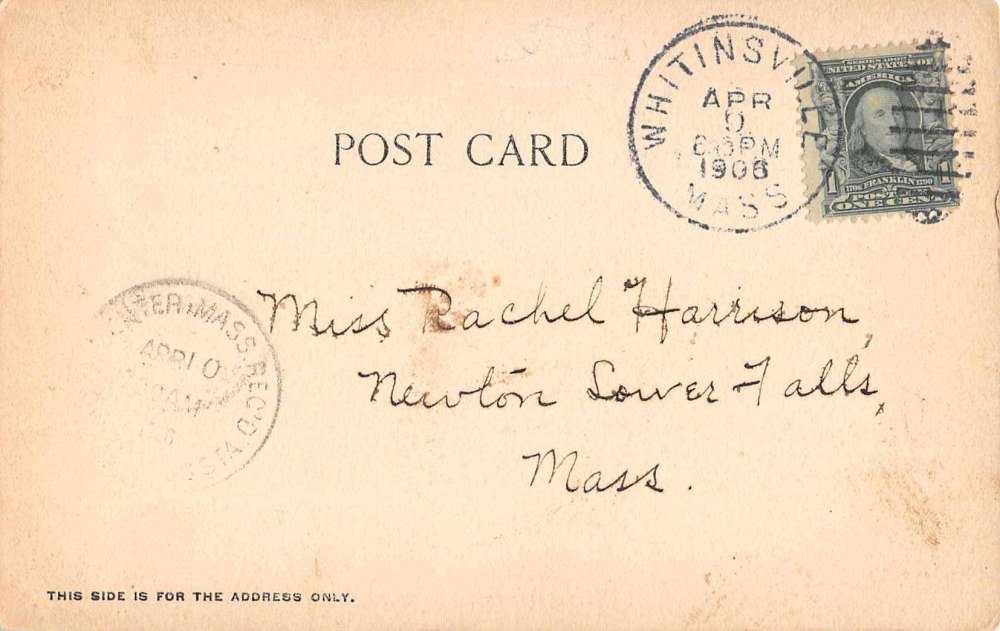 POST CARD
WHITINSVILLE
APR
6-PM
1906
MASS
SERIES 1902
UNITED STATES OF
AMERICA
1706 FRANKLIN 1790
1 POSTAGE 1
ONE CENT
MASS. REC'D.
APR 10
AM
STA.
Miss Rachel Harrison,
Newton Lower Falls,
Mass.
THIS SIDE IS FOR THE ADDRESS ONLY.